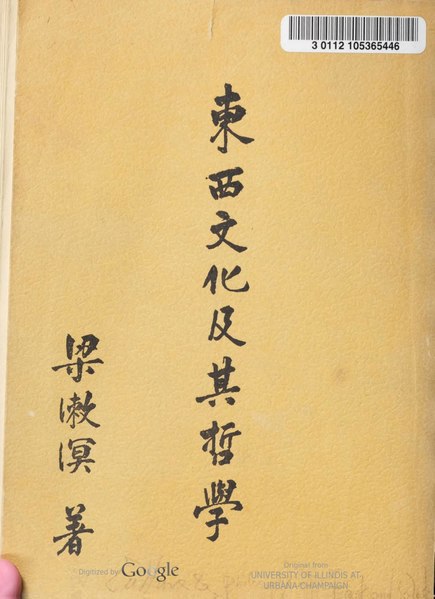 3 0112 105365446
東西文化及其哲學
梁漱溟 著
Digitized by Google
Original from
UNIVERSITY OF ILLINOIS AT
URBANA-CHAMPAIGN